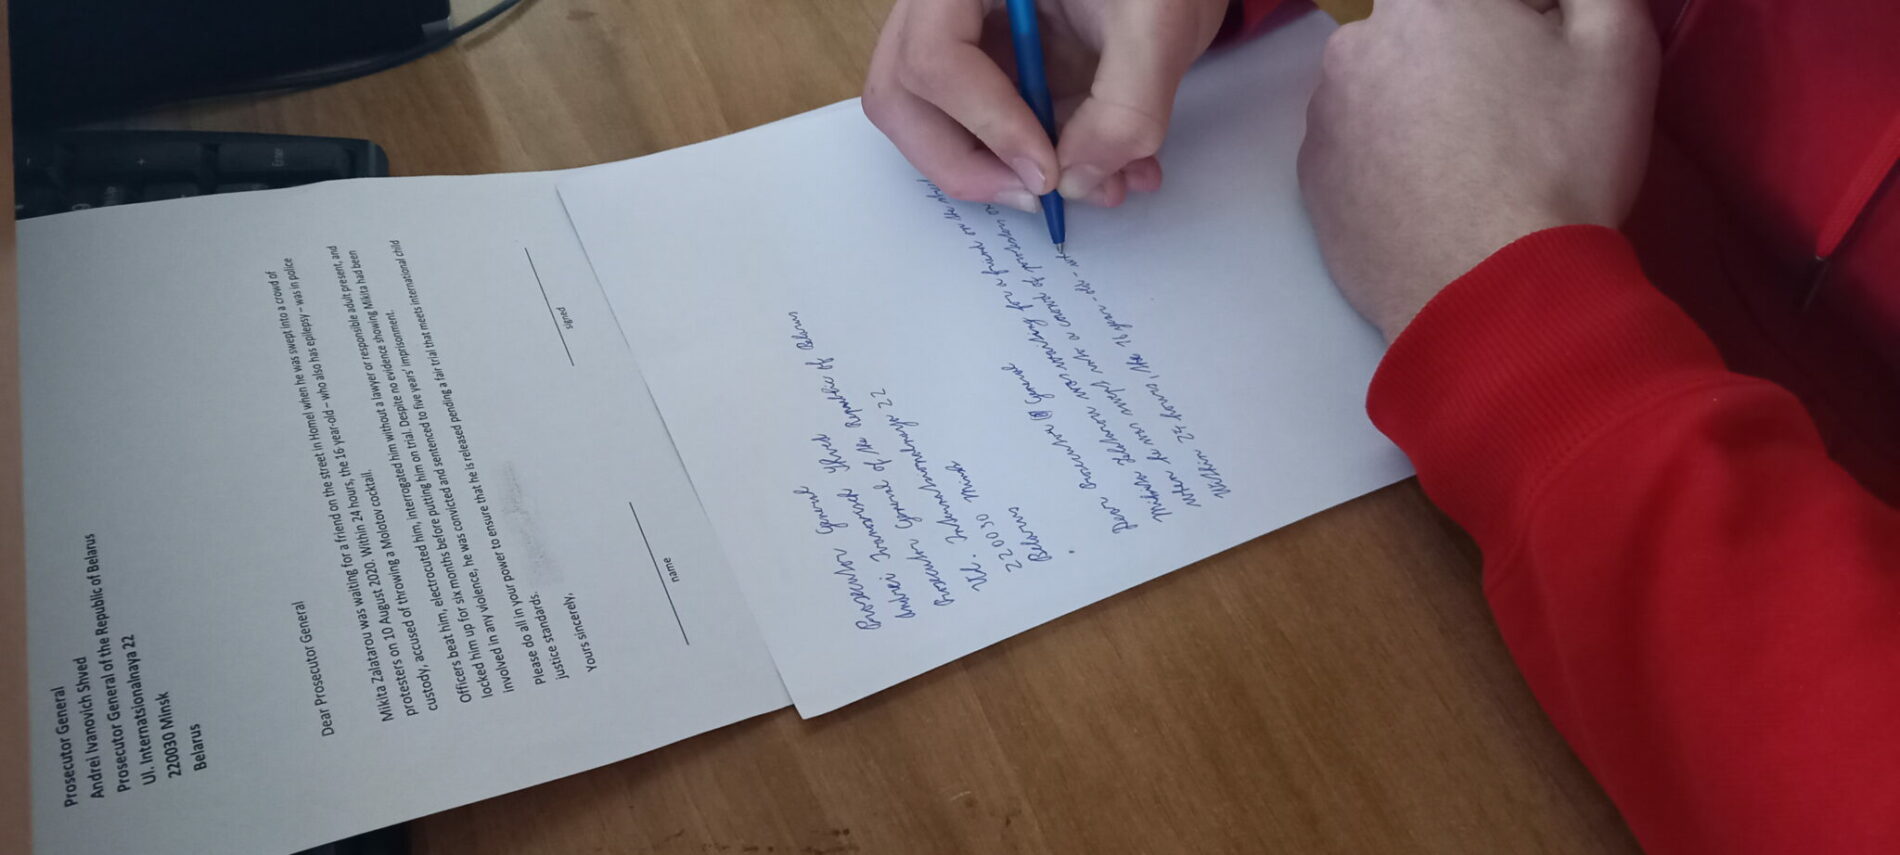 Prosecutor General
Andrei Ivanovich Shved
Prosecutor General of the Republic of Belarus
Ul. Internatsionalnaya 22
220030 Minsk
Belarus
Dear Prosecutor General
Mikita Zalatarou was waiting for a friend on the street in Homel when he was swept into a crowd of
protesters on 10 August 2020. Within 24 hours, the 16 year-old – who also has epilepsy – was in police
custody, accused of throwing a Molotov cocktail.
Officers beat him, electrocuted him, interrogated him without a lawyer or responsible adult present, and
locked him up for six months before putting him on trial. Despite no evidence showing Mikita had been
involved in any violence, he was convicted and sentenced to five years' imprisonment.
Please do all in your power to ensure that he is released pending a fair trial that meets international child
justice standards.
Yours sincerely,
name
signed
Prosecutor General
Andrei Ivanovich Shved
Prosecutor General of the Republic of Belarus
Ul. Internatsionalnaya 22
220030 Minsk
Belarus
Dear Prosecutor General
Mikita Zalatarou was waiting for a friend on the street
when he was swept into a crowd of protesters on
Within 24 hours, the 16 year-old -
Enter
+